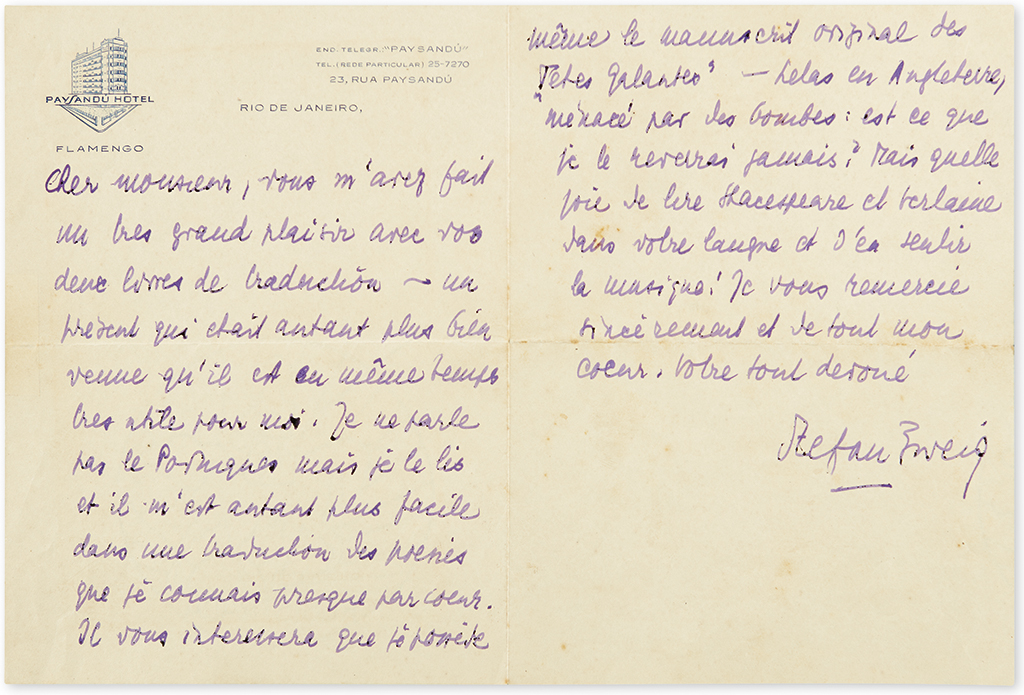 PAYSANDÚ HOTEL
FLAMENGO
END. TELEGR. "PAYSANDÚ"
TEL. (REDE PARTICULAR) 25-7270
23, RUA PAYSANDÚ
RIO DE JANEIRO,
Cher monsieur, vous m'avez fait
un tres grand plaisir avec vos
deux livres de traduction – un
présent qui était autant plus bien
venue qu'il est en même temps
tres utile pour moi. Je ne parle
pas le Portugues mais je le lis
et il m'est autant plus facile
dans une traduction des poesies
que je connais presque par coeur.
Il vous interessera que je possède
même le manuscrit original des
"Fetes Galantes" – helas en Angleterre,
menacé par des bombes : est ce que
je le reverrai jamais? Mais quelle
joie de lire Shacespeare et Verlaine
dans votre langue et d'en sentir
la musique! Je vous remercie
sincèrement et de tout mon
coeur. Votre tout devoué
Stefan Zweig